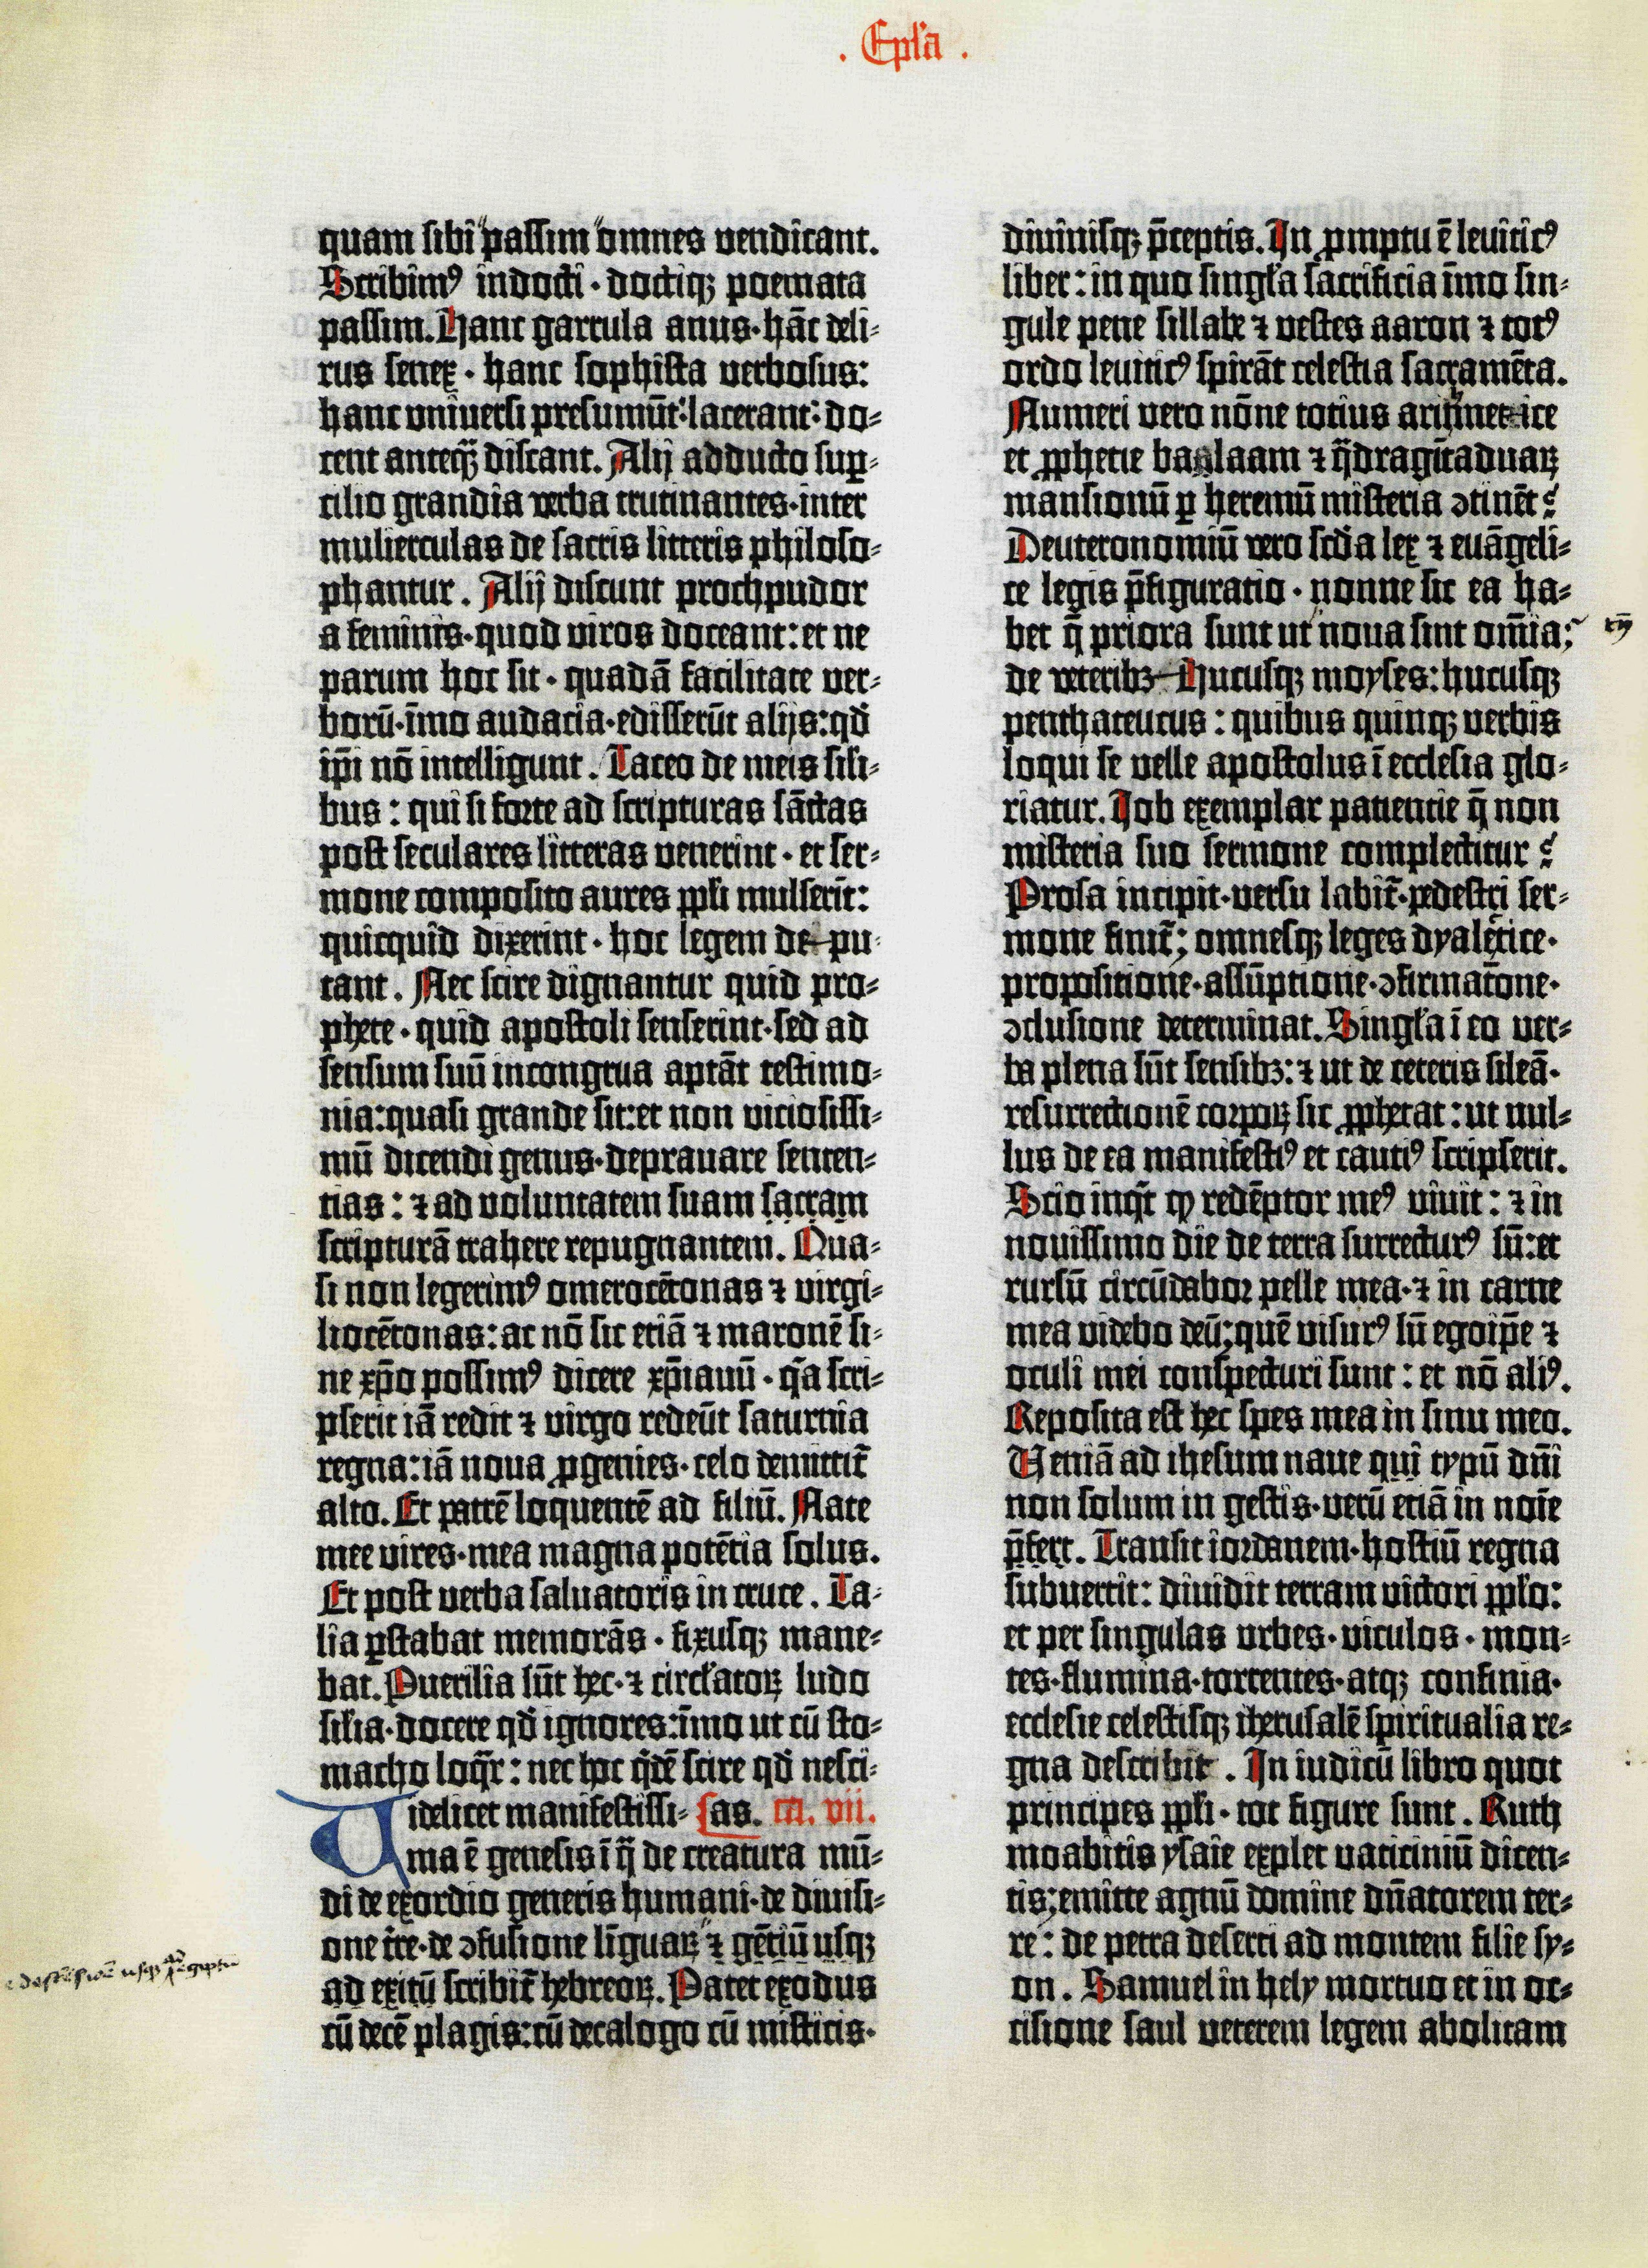 . Epl̃a .
quam sibi passim omnes vendicant.
Scribimꝰ indocti · doctiqꝫ poemata
passim. Hanc garrula anus · hāc deli-
rus senex · hanc sophista verbosus:
hanc universi presumūt: lacerant: do-
cent anteqꝫ̄ discant. Alij adducto suꝑ-
cilio grandia verba trutinantes · inter
mulierculas de sacris litteris philoso-
phantur. Alij discunt proch pudor
a feminis · quod viros doceant: et ne
parum hoc sit · quadā facilitate ver-
borū · īmo audacia · edisserūt alijs: qd̄
ip̄i nō intelligunt. Taceo de meis sili-
bus: qui si forte ad scripturas sāctas
post seculares litteras venerint · et ser-
mone composito aures ppl̄i mulserīt:
quicquid dixerint · hoc legem de pu-
tant. Nec scire dignantur quid pro-
phete · quid apostoli senserint · sed ad
sensum suū incongrua aptāt testimo-
nia: quasi grande sit: et non viciosissi-
mū dicendi genus · depravare senten-
tias: ⁊ ad voluntatem suam sacram
scripturā trahere repugnantem. Qua-
si non legerimꝰ omerocētonas ⁊ virgi-
liocētonas: ac nō sic etiā ⁊ maronē si-
ne xp̄o possimꝰ dicere xp̄ianū · q̄a scri-
pserit iā redit ⁊ virgo redeūt saturnia
regna: iā nova ꝓgenies · celo demittit̄
alto. Et patrē loquentē ad filiū. Nate
mee vires · mea magna potētia solus.
Et post verba salvatoris in cruce. Ta-
lia ꝑstabat memorās · fixusqꝫ mane-
bat. Puerilia sūt hec · ⁊ circl̄atoꝝ ludo
sil̄ia · docere qd̄ ignores: īmo ut cū sto-
macho loqr̄: nec hoc q̄dē scire qd̄ nesci-
Videlicet manifestissi- [as. ca. vii.
ma ē genesis ī q̄ de creatura mū-
di de exordio generis humani · de divisi-
one tr̄e · de ɔfusione līguaꝝ ⁊ gētiū usqꝫ
ad exitū scribit̄ hebreoꝝ. Patet exodus
cū decē plagis: cū decalogo cū misticis ·
divinisqꝫ p̄ceptis. In ꝓmptu ē leviticꝰ
liber: in quo singl̄a sacrificia īmo sin-
gule pene sillabe ⁊ vestes aaron ⁊ totꝰ
ordo leviticꝰ spirāt celestia sacramēta.
Numeri vero nōne totius arithmetice
et ꝓphetie balaam ⁊ q̄dragīta duaꝝ
mansionū ꝑ heremū misteria ɔtinēt?
Deuteronomiū vero scd̄a lex ⁊ euāgeli-
ce legis p̄figuratio · nonne sic ea ha-
bet q̄ priora sunt ut nova sint om̄ia;
de veteribꝫ Hucusqꝫ moyses: hucusqꝫ
penthateucus: quibus quinqꝫ verbis
loqui se velle apostolus ī ecclesia glo-
riatur. Job exemplar patientie q̄ non
misteria suo sermone complectitur?
Prosa incipit · versu labit̄ · pedestri ser-
mone finit̄; omnesqꝫ leges dyaletice ·
propositione · assūptione · ɔfirmatōne ·
ɔclusione determinat. Singl̄a ī eo ver-
ba plena sūt sensibꝫ: ⁊ ut de ceteris sileā ·
resurrectionē corpoꝝ sic ꝓphetat: ut nul-
lus de ea manifestiꝰ et cautiꝰ scripserit.
Scio inqt̄ ꝙ redēptor meꝰ vivit: ⁊ in
novissimo die de terra surrecturꝰ sū: et
rursū circūdabor pelle mea · ⁊ in carne
mea videbo deū; quē visurꝰ sū ego ip̄e ⁊
oculi mei conspecturi sunt: et nō aliꝰ.
Reposita est hec spes mea in sinu meo.
Veniā ad ihesum naue qui typū dn̄i
non solum in gestis · verū etiā in noīe
p̄fert. Transit iordanem · hostiū regna
subvertit: dividit terram victori ppl̄o:
et per singulas urbes · viculos · mon-
tes · flumina · torrentes · atqꝫ confinia ·
ecclesie celestisqꝫ iherusalē spiritualia re-
gna describit. In iudicū libro quot
principes ppl̄i · tot figure sunt. Ruth
moabitis ysaie explet vaticiniū dicen-
tis; emitte agnū domine dn̄atorem ter-
re: de petra deserti ad montem filie sy-
on. Samuel in hely mortuo et in oc-
cisione saul veterem legem abolitam